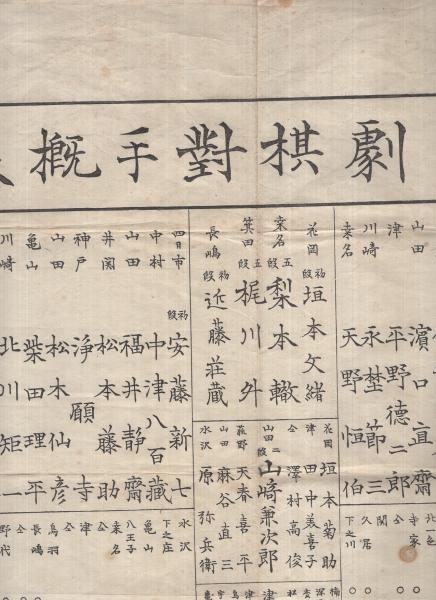 劇棋對手概
山田 濱口直齋
津 平野德二郎
川崎 永埜節三
桑名 天野恒伯
花岡 初段 垣本文緒
桑名 五段 梨本轍
箕田 五段 梶川外
長嶋 初段 近藤荘蔵
四日市 初段 安藤新七
中村 中津八百藏
山田 福井靜齋
井関 松本藤助
神戸 淨願寺
山田 松木仙彦
亀山 柴田理平
川崎 北川矩一
花岡 垣本菊助
津 田中美喜子
仝 澤村高俊
山田 二段 山﨑兼次郎
萩野 天春喜平
山田 麻谷直三
水沢 原弥兵衛
北一色
寺家
仝
関
久居
下之川
水沢
下之庄
亀山
八王子
桑名
津
仝
鳥羽
仝
長嶋
仝
野代